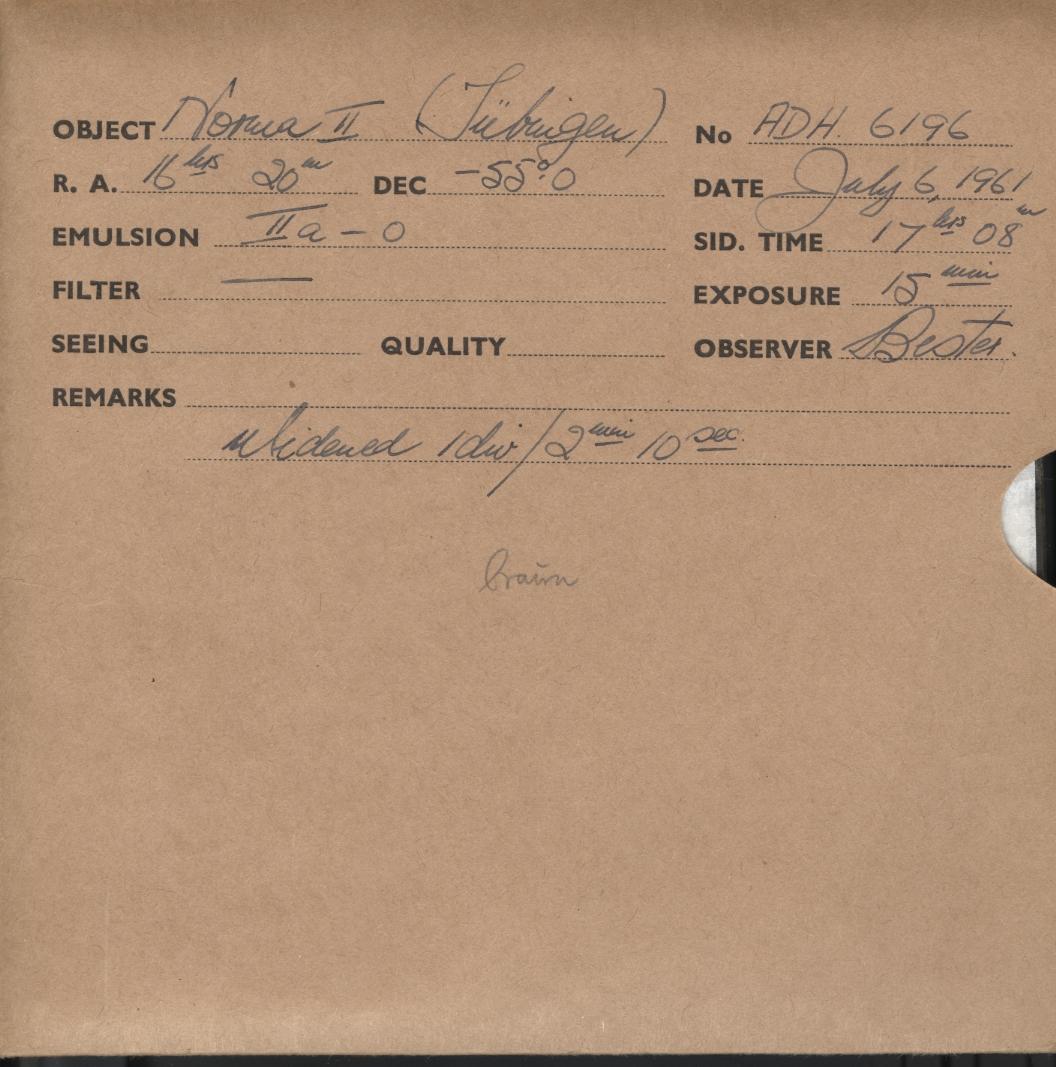 OBJECT Norma II (Tübingen) No ADH. 6196
R. A. 16 hrs 20 m DEC -55°.0 DATE July 6, 1961
EMULSION IIa - O SID. TIME 17 hrs 08 m
FILTER — EXPOSURE 15 min
SEEING QUALITY OBSERVER Bester.
REMARKS
Widened 1 div/2 min 10 sec.
braun